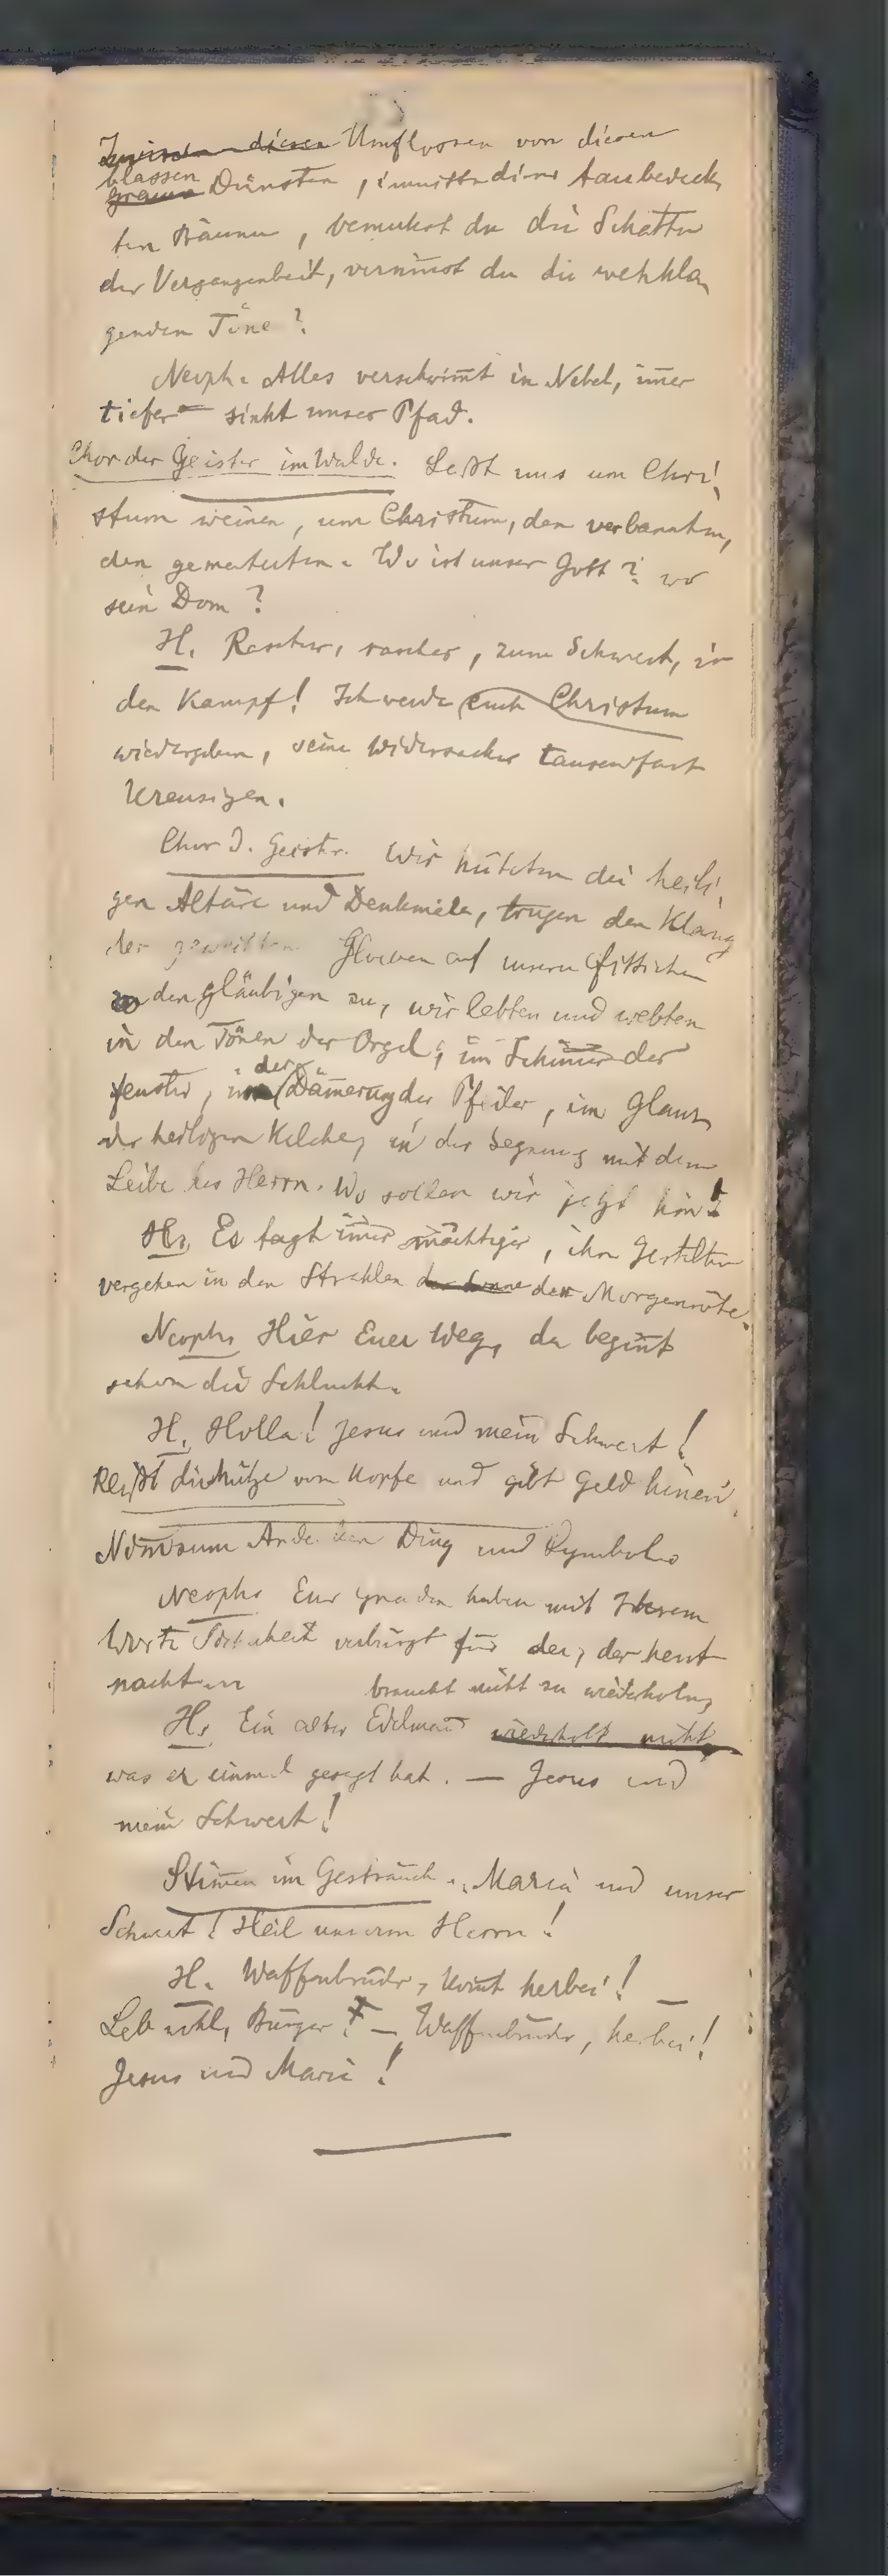 Zwischen diesen Umflossen von diesen
blassen
graue Dünsten, inmitten dieser taubedeck,
ten Bäume, bemerkst du die Schatten
der Vergangenheit, vernim̄st du die wehkla,
genden Töne?
Neoph. Alles verschwim̄t in Nebel, im̄er
tiefer sinkt unser Pfad.
Chor der Geister im Walde. Laßt uns um Chri,
stum weinen, um Christum, den verbannten,
den gemarterten. Wo ist unser Gott? wo
sein Dom?
H. Rascher, rascher, zum Schwert, in
den Kampf! Ich werde euch Christum
wiedergeben, seine Widersacher tausendfach
kreuzigen.
Chor d. Geister. Wir hüteten die heili,
gen Altäre und Denkmäler, trugen den Klang
der geweihten Glocken auf unsern Fittichen
den Gläubigen zu, wir lebten und webten
in den Tönen der Orgel, im Schim̄er der
der
Fenster, in Däm̄erung der Pfeiler, im Glanz
der heiligen Kelche, in der Segnung mit dem
Leibe des Herrn. Wo sollen wir jetzt hin?
H. Es tagt im̄er mächtiger, ihre Gestalten
vergehen in den Strahlen der Sonne der Morgenröte.
Neoph. Hier Euer Weg, da begin̄t
schon die Schlucht.
H. Holla! Jesus und mein Schwert!
Reißt die Mütze vom Kopfe und gibt Geld hinein,
Ding und Symbol
Neoph. Eur Gnaden haben mit Ihrem
Worte Sicherheit verbürgt für den, der heut
nacht braucht nicht zu wiederholen,
H. Ein alter Edelmann wiederholt nicht,
was er einmal gesagt hat. — Jesus und
mein Schwert!
Stim̄en im Gesträuch. Maria und unser
Schwert! Heil unserm Herrn!
H. Waffenbrüder, kom̄t herbei! —
Leb wohl, Bürger! — Waffenbrüder, herbei!
Jesus und Maria!